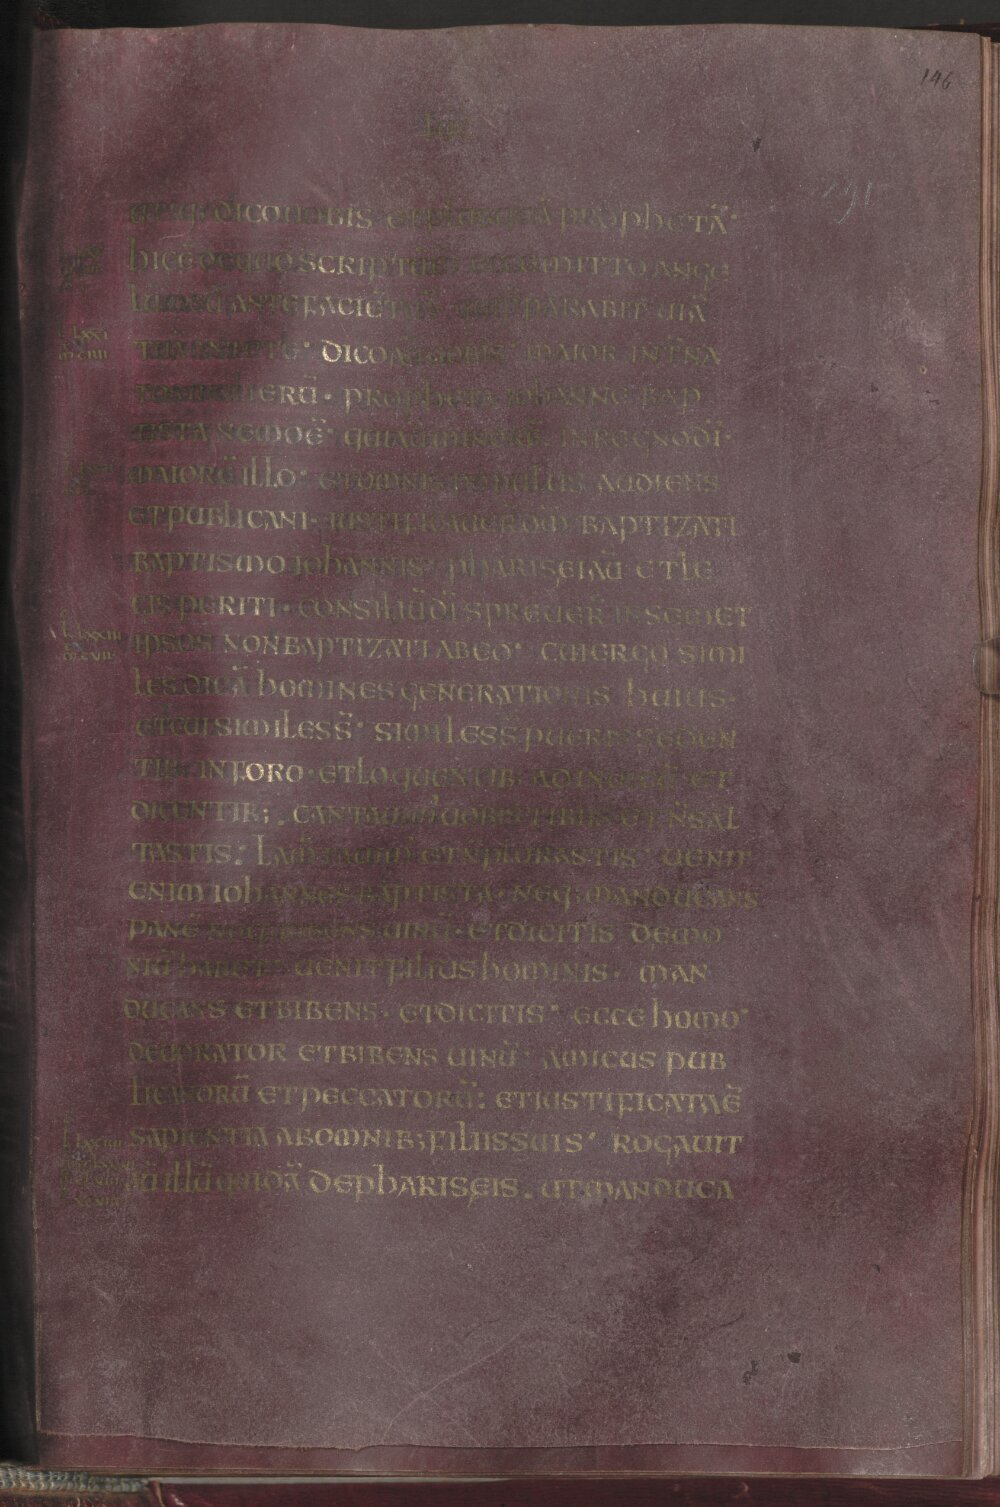 146
luc
191
ETIAM DICO UOBIS· ET PLUS QUĀ PROPHETĀ·
HIC Ē DE QUO SCRIPTŪ Ē· ECCE MITTO ANGE
LŪ MEŪ ANTE FACIĒ TUĀ· QUI PARABIT UIĀ
DICO UOBIS· MAIOR INT̄ NA
TOS MULIERŪ· PROPHETA IOHANNE BAP
TISTA NEMO Ē· QUI AŪ MINOR Ē IN REGNO DĪ·
MAIOR Ē ILLO· ET OMNIS POPULUS AUDIENS
ET PUBLICANI· IUSTIFICAUER̄ DM̄ BAPTIZATI
BAPTISMO IOHANNIS· PHARISEI AŪ ET LE
GIS PERITI· CONSILIŪ DĪ SPREUER̄ IN SEMET
IPSOS NON BAPTIZATI AB EO· CUI ERGO SIMI
LES DICĀ HOMINES GENERATIONIS HUIUS·
ET CUI SIMILES S̄· SIMILES S̄ PUERIS SEDEN
TIB· IN FORO· ET LOQUENTIB· AD INUICĒ ET
DICENTIB; CANTAUIM' UOBIS TIBIIS ET N̄ SAL
TASTIS· LAMTAUIM' ET N̄ PLORASTIS· UENIT
ENIM IOHANNES BAPTISTA· NEQ; MANDUCANS
PANĒ NEQ; BIBENS UINŪ· ET DICITIS DEMO
NIŪ HABET· UENIT FILIUS HOMINIS· MAN
DUCANS ET BIBENS· ET DICITIS· ECCE HOMO·
DEUORATOR ET BIBENS UINŪ· AMICUS PUB
LICANORŪ ET PECCATORŪ: ET IUSTIFICATA Ē
SAPIENTIA AB OMNIB; FILIIS SUIS· ROGAUIT
AŪ ILLŪ QUIDĀ DE PHARISEIS· UT MANDUCA